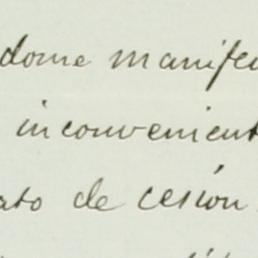 dome manifes
inconvenient
ato de cesión